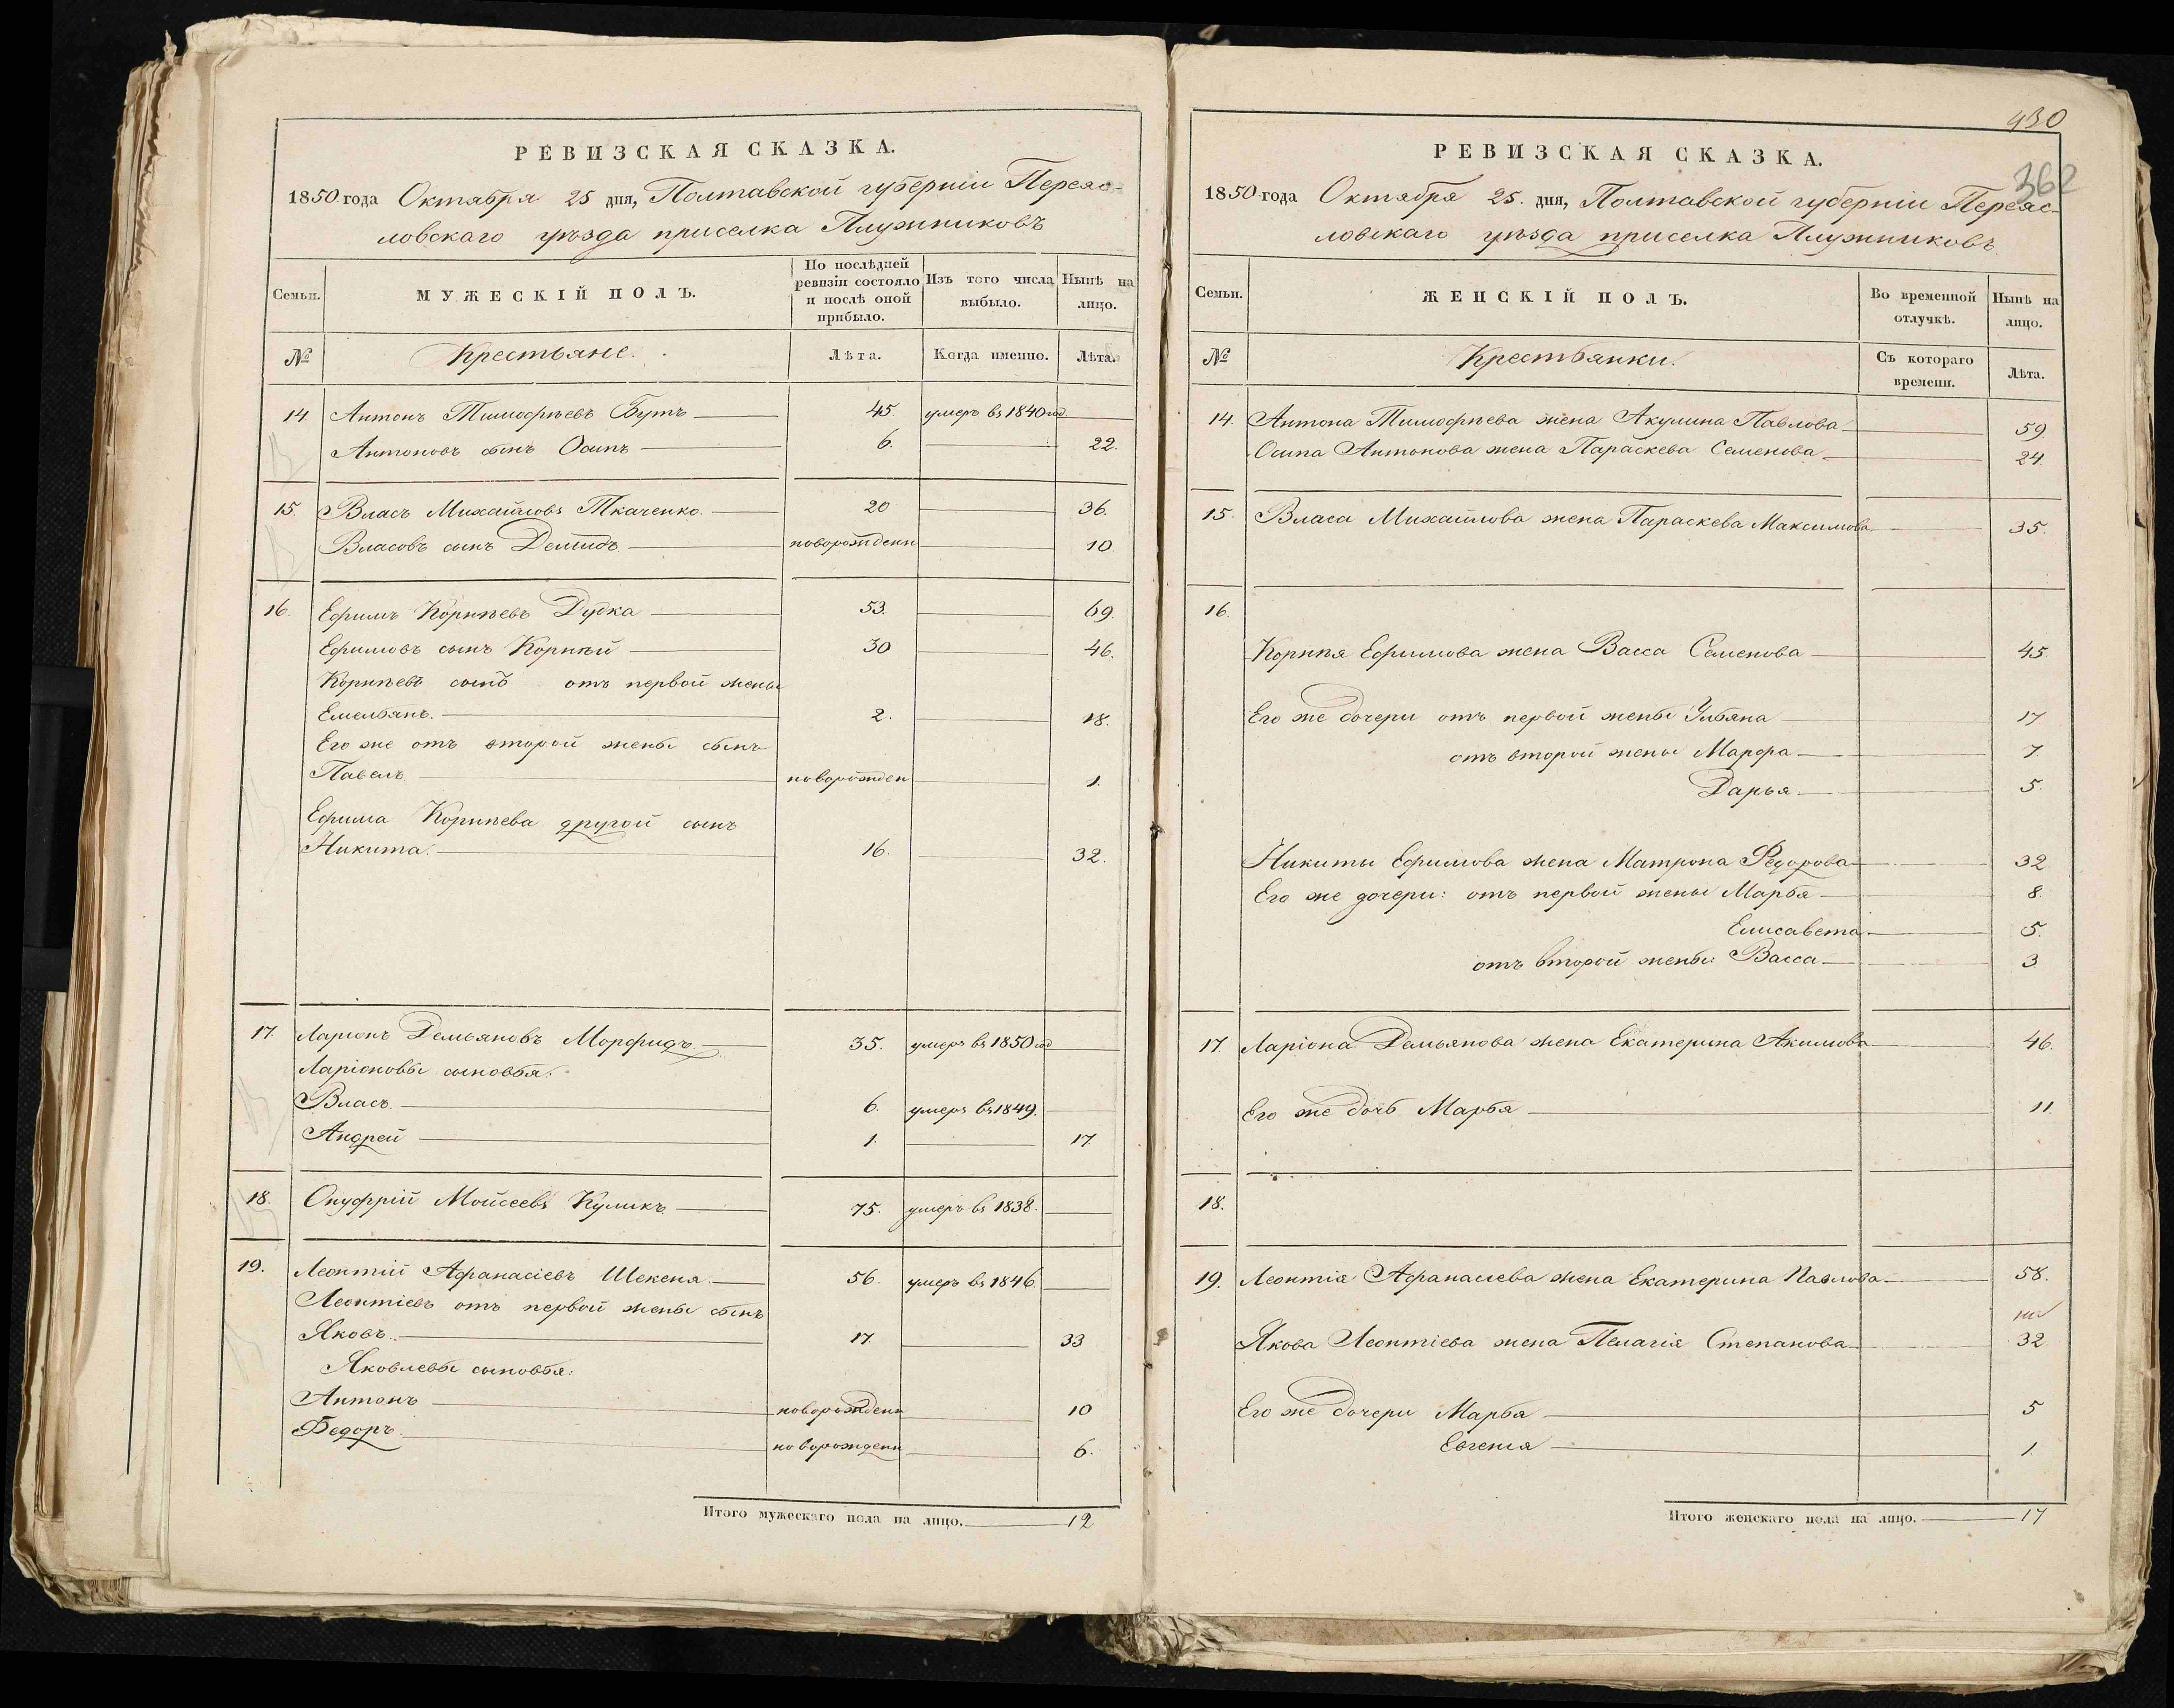 РЕВИЗСКАЯ СКАЗКА.
1850 года Октября 25 дня, Полтавской губерніи Переяс-
ловскаго уѣзда приселка Плужниковъ
Семьи.
МУЖЕСКІЙ ПОЛЪ.
По послѣдней ревизіи состояло и послѣ оной прибыло.
Изъ того числа выбыло.
Нынѣ на лицо.
№
Крестьяне.
Лѣта.
Когда именно.
Лѣта.
14 Антонъ Тимофѣевъ Бутъ 45. умеръ въ 1840 год
Антоновъ сынъ Осипъ 6. 22.
15. Власъ Михайловъ Ткаченко. 20 36.
Власовъ сынъ Демидъ новорожденн 10
16. Ефимъ Корнѣевъ Дудка 53. 69.
Ефимовъ сынъ Корнѣй 30 46.
Корнѣевъ сынъ отъ первой жены
Емельянъ. 2. 18.
Его же отъ второй жены сынъ
Павелъ новорожден 1.
Ефима Корнѣева другой сынъ
Никита. 16. 32.
17. Ларіонъ Демьяновъ 35. умеръ въ 1850 год
Ларіоновы сыновья:
Власъ 6. умеръ въ 1849.
Андрей 1. 17.
18. Онуфрій Мойсеевъ Куликъ 75. умеръ въ 1838.
19. Леонтій Афанасіевъ Шекеня 56. умеръ въ 1846
Леонтіевъ отъ первой жены сынъ
Яковъ. 17. 33
Яковлевы сыновья:
Антонъ новорожденн 10
Федоръ новорожденн 6.
Итого мужескаго пола на лицо. 12
430
362
РЕВИЗСКАЯ СКАЗКА.
1850 года Октября 25. дня, Полтавской губерніи Переяс-
ловскаго уѣзда приселка Плужниковъ
Семьи.
ЖЕНСКІЙ ПОЛЪ.
Во временной отлучкѣ.
Нынѣ на лицо.
№
Крестьянки.
Съ котораго времени.
Лѣта.
14. Антона Тимофѣева жена Акулина Павлова 59.
Осипа Антонова жена Параскева Семенова 24.
15. Власа Михайлова жена Параскева Максимова 35.
16.
Корнѣя Ефимова жена Васса Семенова 45
Его же дочери отъ первой жены Ульяна 17
отъ второй жены Марфа 7.
Дарья 5.
Никиты Ефимова жена Матрона Федорова 32
Его же дочери: отъ первой жены Марья 8.
Елисавета 5.
отъ второй жены: Васса 3
17. Ларіона Демьянова жена Екатерина Акимова 46.
Его же дочь Марья 11
18.
19. Леонтія Афанасіева жена Екатерина Павлова 58.
Якова Леонтіева жена Пелагія Степанова 32
Его же дочери Марья 5
Евгенія 1.
Итого женскаго пола на лицо. 17